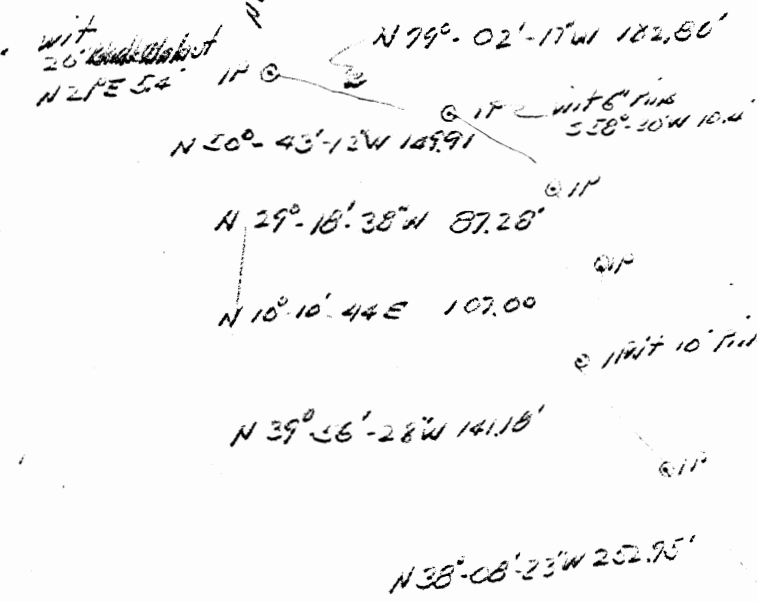 wit
N 79°-02'-17"W 182.80'
20"
N21°E 5.4'
IP
IP wit 6" Pine
S58°-10'W 10.4'
N 50°-43'-12"W 149.91
IP
N 29°-18'-38"W 87.28'
IP
N 10°-10'-44E 107.00
IP wit 10"
N 39°-56'-28"W 141.18'
IP
N38°-08'-23"W 252.95'